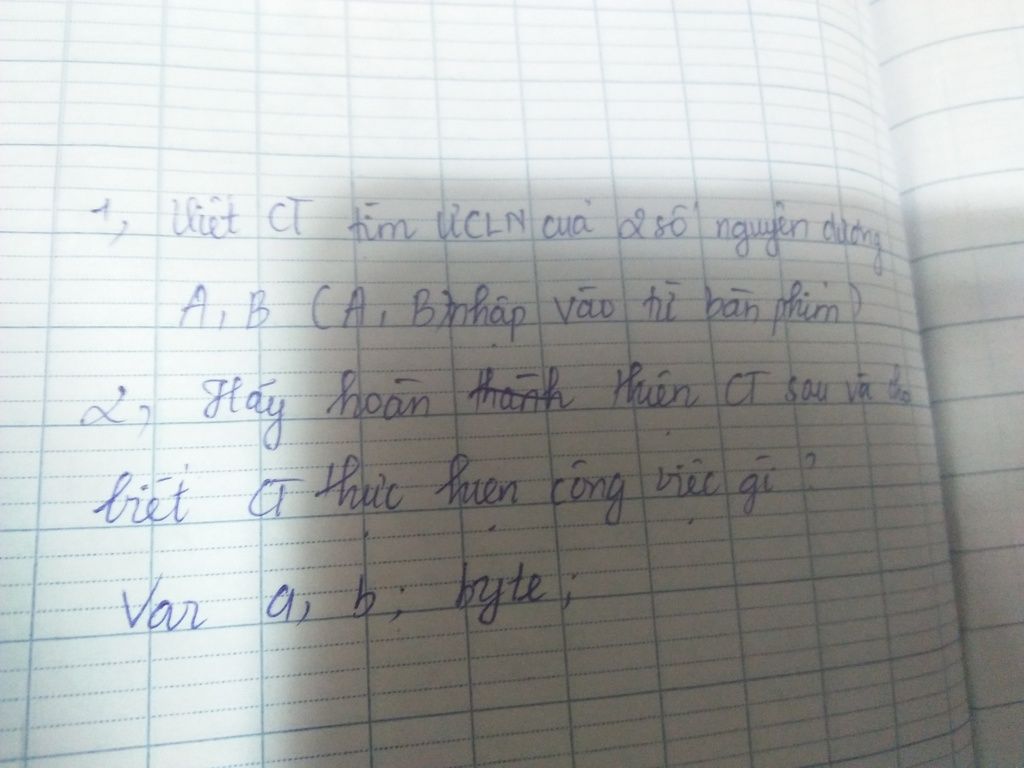 1, Viết CT tìm ƯCLN của 2 số nguyên dương
A, B (A, B nhập vào từ bàn phím)
2, Hãy hoàn thành thiện CT sau và cho
biết CT thực hiện công việc gì?
Var a, b; byte;